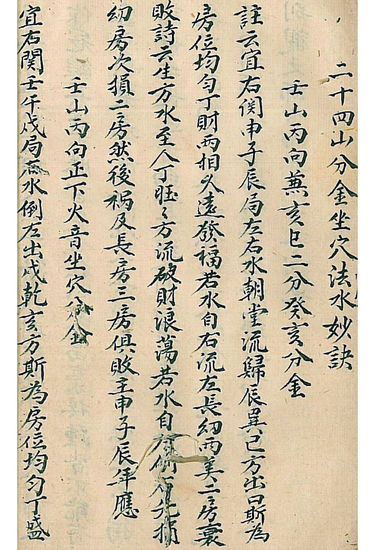 二十四山分金坐穴法水妙訣
壬山丙向兼亥巳二分癸亥分金
註云宜右関申子辰局左右水朝堂流歸辰巽巳方出口斯為
房位均匀丁財兩相久遠發福若水自右流左長幼两美二房衰
敗詩云生方水至人丁旺〻方流破財浪蕩若水自左倒右先損
幼房次損二房然後禍及長房三房俱敗主申子辰年應
壬山丙向正下火音坐穴分金
宜右関壬午戌局右水倒左出戌乾亥方斯為房位均匀丁盛